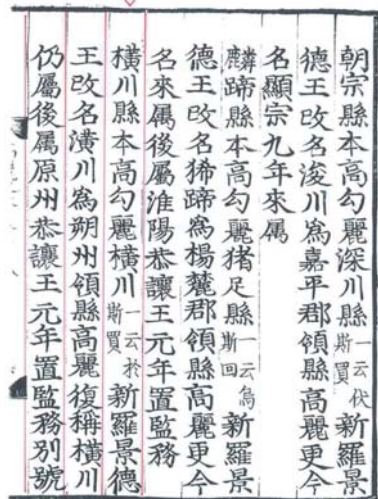 朝宗縣本高勾麗深川縣一云伏斯買新羅景
德王改名浚川爲嘉平郡領縣高麗更今
名顯宗九年來屬
麟蹄縣本高勾麗猪足縣一云烏斯回新羅景
德王改名狶蹄爲楊麓郡領縣高麗更今
名來属後屬淮陽恭讓王元年置監務
橫川縣本高勾麗橫川一云於斯買新羅景德
王改名潢川爲朔州領縣高麗復稱橫川
仍屬後属原州恭讓王元年置監務別號